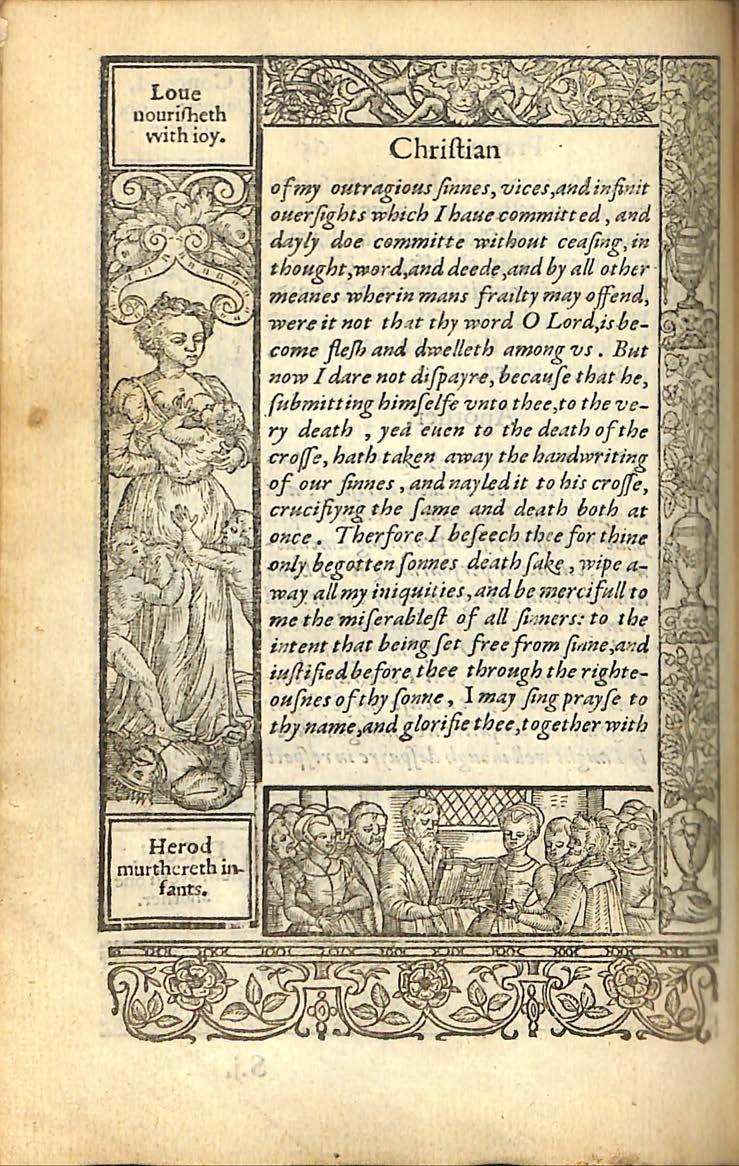 Loue
nouriſheth
vvith ioy.
Chriſtian
of my outragious ſinnes, vices, and infinit
ouerſights which I haue committed, and
dayly doe committe without ceaſing, in
thought, word, and deede, and by all other
meanes wherin mans frailty may offend,
were it not that thy word O Lord, is be-
come fleſh and dwelleth among vs. But
now I dare not diſpayre, becauſe that he,
ſubmitting himſelfe vnto thee, to the ve-
ry death, yea euen to the death of the
croſſe, hath taken away the handwriting
of our ſinnes, and nayled it to his croſſe,
crucifiyng the ſame and death both at
once. Therfore I beſeech thee for thine
only begotten ſonnes death ſake, wipe a-
way all my iniquities, and be mercifull to
me the miſerableſt of all ſinners: to the
intent that being ſet free from ſinne, and
iuſtified before thee through the righte-
ouſnes of thy ſonne, I may ſing prayſe to
thy name, and glorifie thee, together with
Herod
murthereth in-
fants.